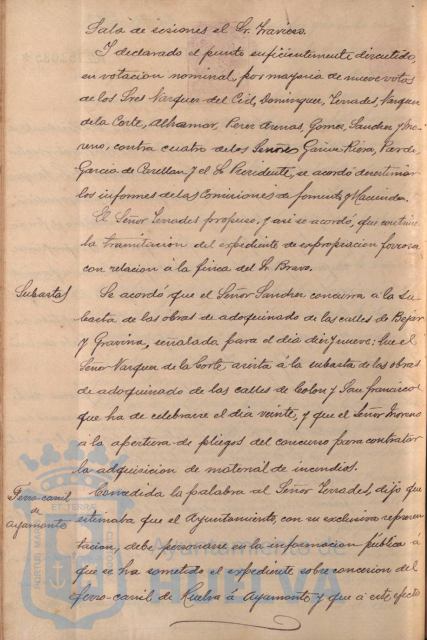 Sala de sesiones el Sr. Travieso.
Y declarado el punto suficientemente discutido,
en votacion nominal, por mayoria de nueve votos
de los Sres Vazquez del Cid, Dominguez, Terrades, Vazquez
de la Corte, Alhamar, Perez Arenas, Gomez, Sanchez y Mo-
reno, contra cuatro de los Señores Garcia Riera,
Garcia de y el Sr Presidente, se acordo desestimar
los informes de las Comisiones de fomento y Hacienda.
El Señor Terrades propuso, y asi se acordó, que continúe
la tramitacion del expediente de expropiacion forzosa
con relacion á la finca del Sr. Bravo.
Subastas
Se acordó que el Señor Sanchez concurra á la su-
basta de las obras de adoquinado de las calles de Bejar
y Gravina, señalada para el dia diez y nueve: que el
Señor Vazquez de la Corte, asista á la subasta de las obras
de adoquinado de las calles de Colon y San Francisco
que ha de celebrarse el dia veinte, y que el Señor Moreno
a la apertura de pliegos del concurso para contratar
la adquisicion de material de incendios.
Ferro-carril
de
Ayamonte
Concedida la palabra al Señor Terrades, dijo que
estimaba que el Ayuntamiento, con su exclusiva represen-
tacion, debe personarse en la informacion pública á
que se ha sometido el expediente sobre concesion del
ferro-carril de Huelva á Ayamonte y que á este efecto
PORTUS MARIS ET TERRAE
Ayuntamiento de
HUELVA